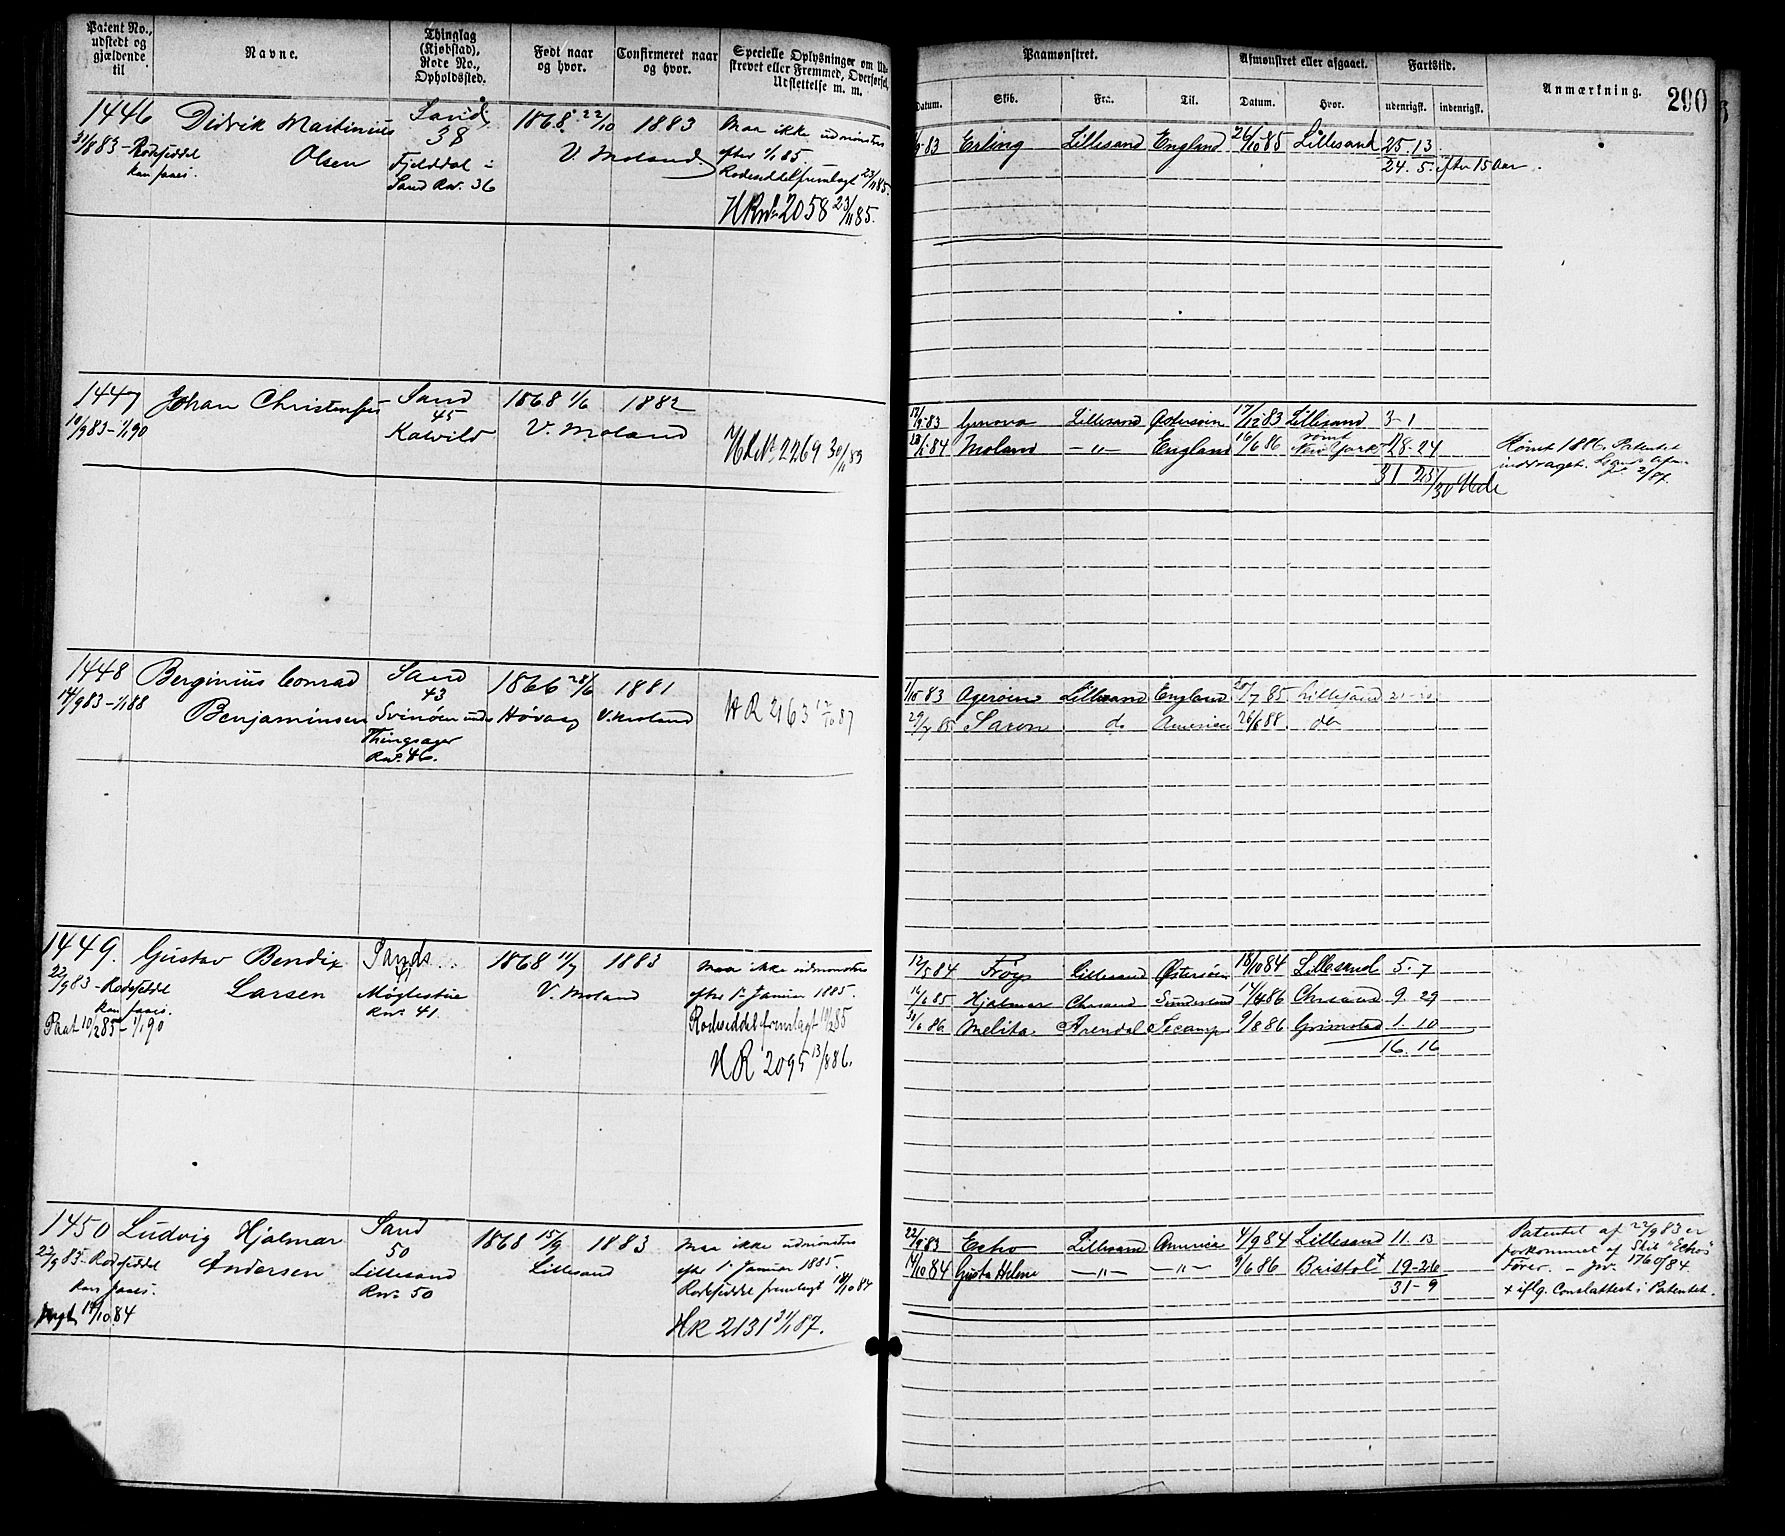 Patent No., udstedt og gjældende til
Navne.
Thinglag (Kjøbstad), Rode No., Opholdssted.
Født naar og hvor.
Confirmeret naar og hvor.
Specielle Oplysninger om Ud-
skrevet eller Fremmed, Overførsel,
Udslettelse m. m.
Paamønstret.
Afmønstret eller afgaaet.
Fartstid.
Anmærkning.
290
Datum.
Skib.
Fra.
Til.
Datum.
Hvor.
udenrigsk.
indenrigsk.
1446
Didrik Martinius
Olsen
31/8 83 - Rodeseddel
kan faaes.
Sand
38
Fjelddal i
Sand Rn. 36
1868 22/10
1883
V. Moland
Maa ikke udmønstres
efter 1/1 85.
Rodeseddel fremlagt 23/11 85.
HR No 2058 23/11 85.
83 Erling Lillesand England 26/10 85 Lillesand 25. 13
24. 5. efter 15 Aar.
1447
Johan Christensen
10/9 83 - 1/1 90
Sand
45
Kalvild
1868 1/6
1882
V. Moland
HR No 2269 30/11 89
17/9 83 Genova Lillesand Østersøen 17/12 83 Lillesand 3 - 1
84 Moland - " - England 16/6 86 rømt New York 28 - 24
31 25/30 Ude
Rømt 1886. Patentet
inddraget.
1448
Berginius Conrad
Benjaminsen
14/9 83 - 1/1 88
Sand
43
Svinøen
Thingsager
Rn. 46.
1866 28/6
Høvaag
1881
V. Moland
HR 2163 87
1/10 83 Agerøen Lillesand England 7 85 Lillesand 21 -
29/7 85 Saron do America 26/6 88 do
1449.
Gustav Bendix
Larsen
22/9 83 - Rodeseddel
kan faaes.
Paat. 10/2 85 - 1/1 90
Sands
41
Møglestue
Rn. 41.
1868 11/7
1883
V. Moland
Maa ikke udmønstres
efter 1ste Januar 1885.
Rodeseddel fremlagt 10/2 85
HR 2095 13/8 86.
12/5 84 Frøy Lillesand Østersøen 18/10 84 Lillesand 5. 7
16/6 85 Hjalmar Chrsand Sunderland 14/4 86 Chrsand 9. 29
30/6 86 Melita. Arendal Fecamp 9/8 86 Grimstad 1. 10
16. 16
1450
Ludvig Hjalmar
Andersen
22/9 83 - Rodeseddel
kan faaes.
18/10 84
Sand
50
Lillesand
Rn. 50
1868 15/9
Lillesand
1883
Maa ikke udmønstres
efter 1ste Januar 1885.
Rodeseddel fremlagt 18/10 84
HR 2131 31/1 87.
22/9 83 Echo Lillesand America 4/9 84 Lillesand 11. 13
84 Gusta Helene - " - - " - 9/6 86 Bristol + 19 - 26
31 - 9
Patentet af 22/9 83 er
forkommet af Skib "Echos"
Fører. - Jvr. 1760/84.
+ iflg. Conslattest i Patentet.